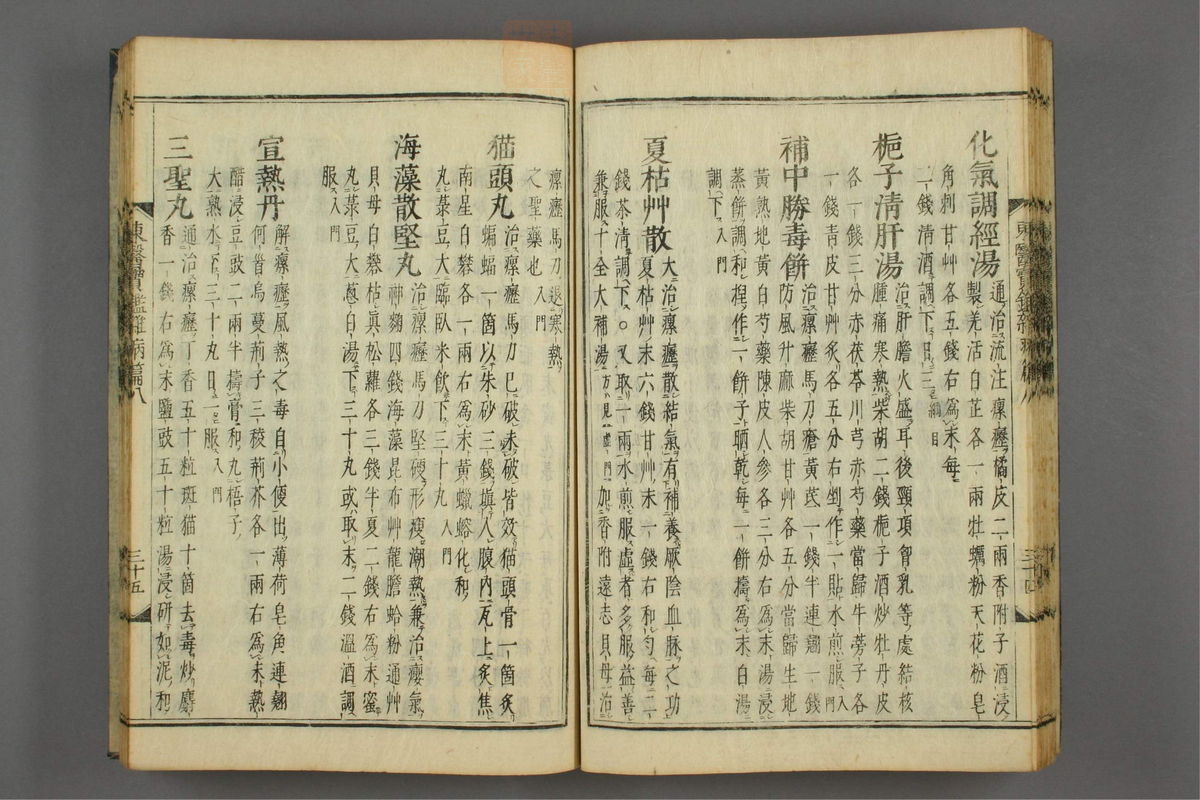 化氣調經湯 通治流注瘰癧橘皮二兩香附子酒浸
製羌活白芷各一兩牡蠣粉天花粉皂
角刺甘艸各五錢右爲末每
二錢清酒調下日三 綱目
梔子清肝湯 治肝膽火盛耳後頸項胷乳等處結核
腫痛寒熱柴胡二錢梔子酒炒牡丹皮
各一錢三分赤茯苓川芎赤芍藥當歸牛蒡子各
一錢青皮甘艸炙各五分右剉作一貼水煎服 入門
補中勝毒餠 治瘰癧馬刀瘡黃芪一錢半連翹一錢
防風升麻柴胡甘艸各五分當歸生地
黃熟地黃白芍藥陳皮人參各三分右爲末湯浸
蒸餠調和捏作一餠子晒乾每一餠擣爲末白湯
調下 入門
夏枯艸散 大治瘰癧散結氣有補養厥陰血脉之功
夏枯艸末六錢甘艸末一錢右和勻每二
錢茶清調下○又取二兩水煎服虛者多服益善
兼服十全大補湯 方見虛門 加香附遠志貝母
東醫寶鑑雜病篇八
三十四
瘰癧馬刀退寒熱
之聖藥也 入門
猫頭丸 治瘰癧馬刀已破未破皆效猫頭骨一箇炙
蝙蝠一箇以朱砂三錢塡入腹內瓦上炙焦
南星白礬各一兩右爲末黃蠟熔化和
丸菉豆大臨臥米飮下三十丸 入門
海藻散堅丸 治瘰癧馬刀堅硬形瘦潮熱兼治癭氣
神麴四錢海藻昆布艸龍膽蛤粉通艸
貝母白礬枯眞松蘿各三錢半夏二錢右爲末蜜
丸菉豆大葱白湯下三十丸或取末二錢溫酒調
服 入門
宣熱丹 解瘰癧風熱之毒自小便出薄荷皂角連翹
何首烏蔓荊子三稜荊芥各一兩右爲末熱
醋浸豆豉二兩半擣膏和丸梧子
大熟水下三十丸日一服 入門
三聖丸 通治瘰癧丁香五十粒斑猫十箇去毒炒麝
香一錢右爲末鹽豉五十粒湯浸研如泥和
東醫寶鑑雜病篇八
三十五